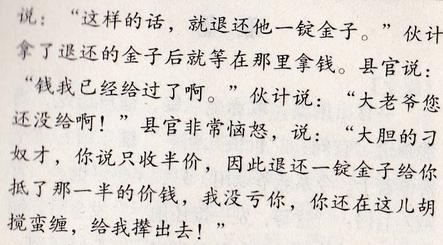 说：“这样的话，就退还他一锭金子。”伙计
拿了退还的金子后就等在那里拿钱。县官说：
“钱我已经给过了啊。”伙计说：“大老爷您
还没给啊！”县官非常恼怒，说：“大胆的刁
奴才，你说只收半价，因此退还一锭金子给你
抵了那一半的价钱，我没亏你，你还在这儿胡
搅蛮缠，给我撵出去！”